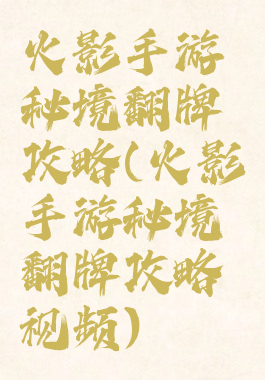 火影手游
秘境翻牌
攻略(火影
手游秘境
翻牌攻略
视频)